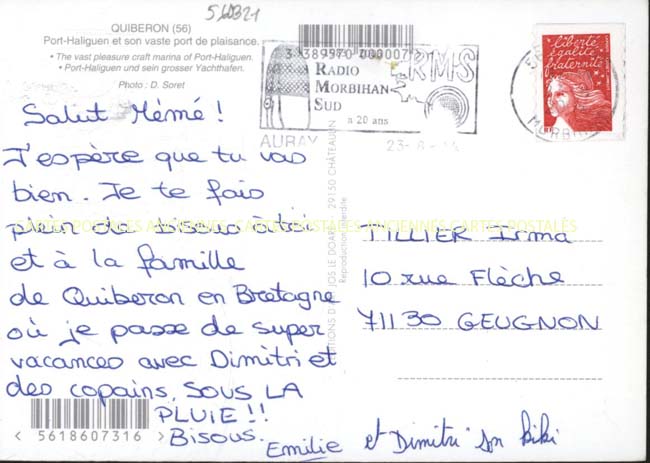 56B321
QUIBERON (56)
Port-Haliguen et son vaste port de plaisance.
• The vast pleasure craft marina of Port-Haliguen.
• Port-Haliguen und sein grosser Yachthafen.
Photo : D. Soret
3 389970 000007
RADIO
MORBIHAN
SUD
a 20 ans
RMS
AURAY
23-8-
liberté
égalité
fraternité
MORBIHAN
Salut Mémé !
J'espère que tu vas
bien. Je te fais
plein de bisous à toi
et à la famille
de Quiberon en Bretagne
où je passe de super
vacances avec Dimitri et
des copains, SOUS LA
PLUIE !!
Bisous.
Emilie et Dimitri son kiki
TILLIER Irma
10 rue Flèche
71130 GEUGNON
CARTES POSTALES ANCIENNES CARTES POSTALES ANCIENNES CARTES POSTALES
JOS LE DOARÉ 29150 CHÂTEAULIN
Reproduction interdite
< 5618607316 >